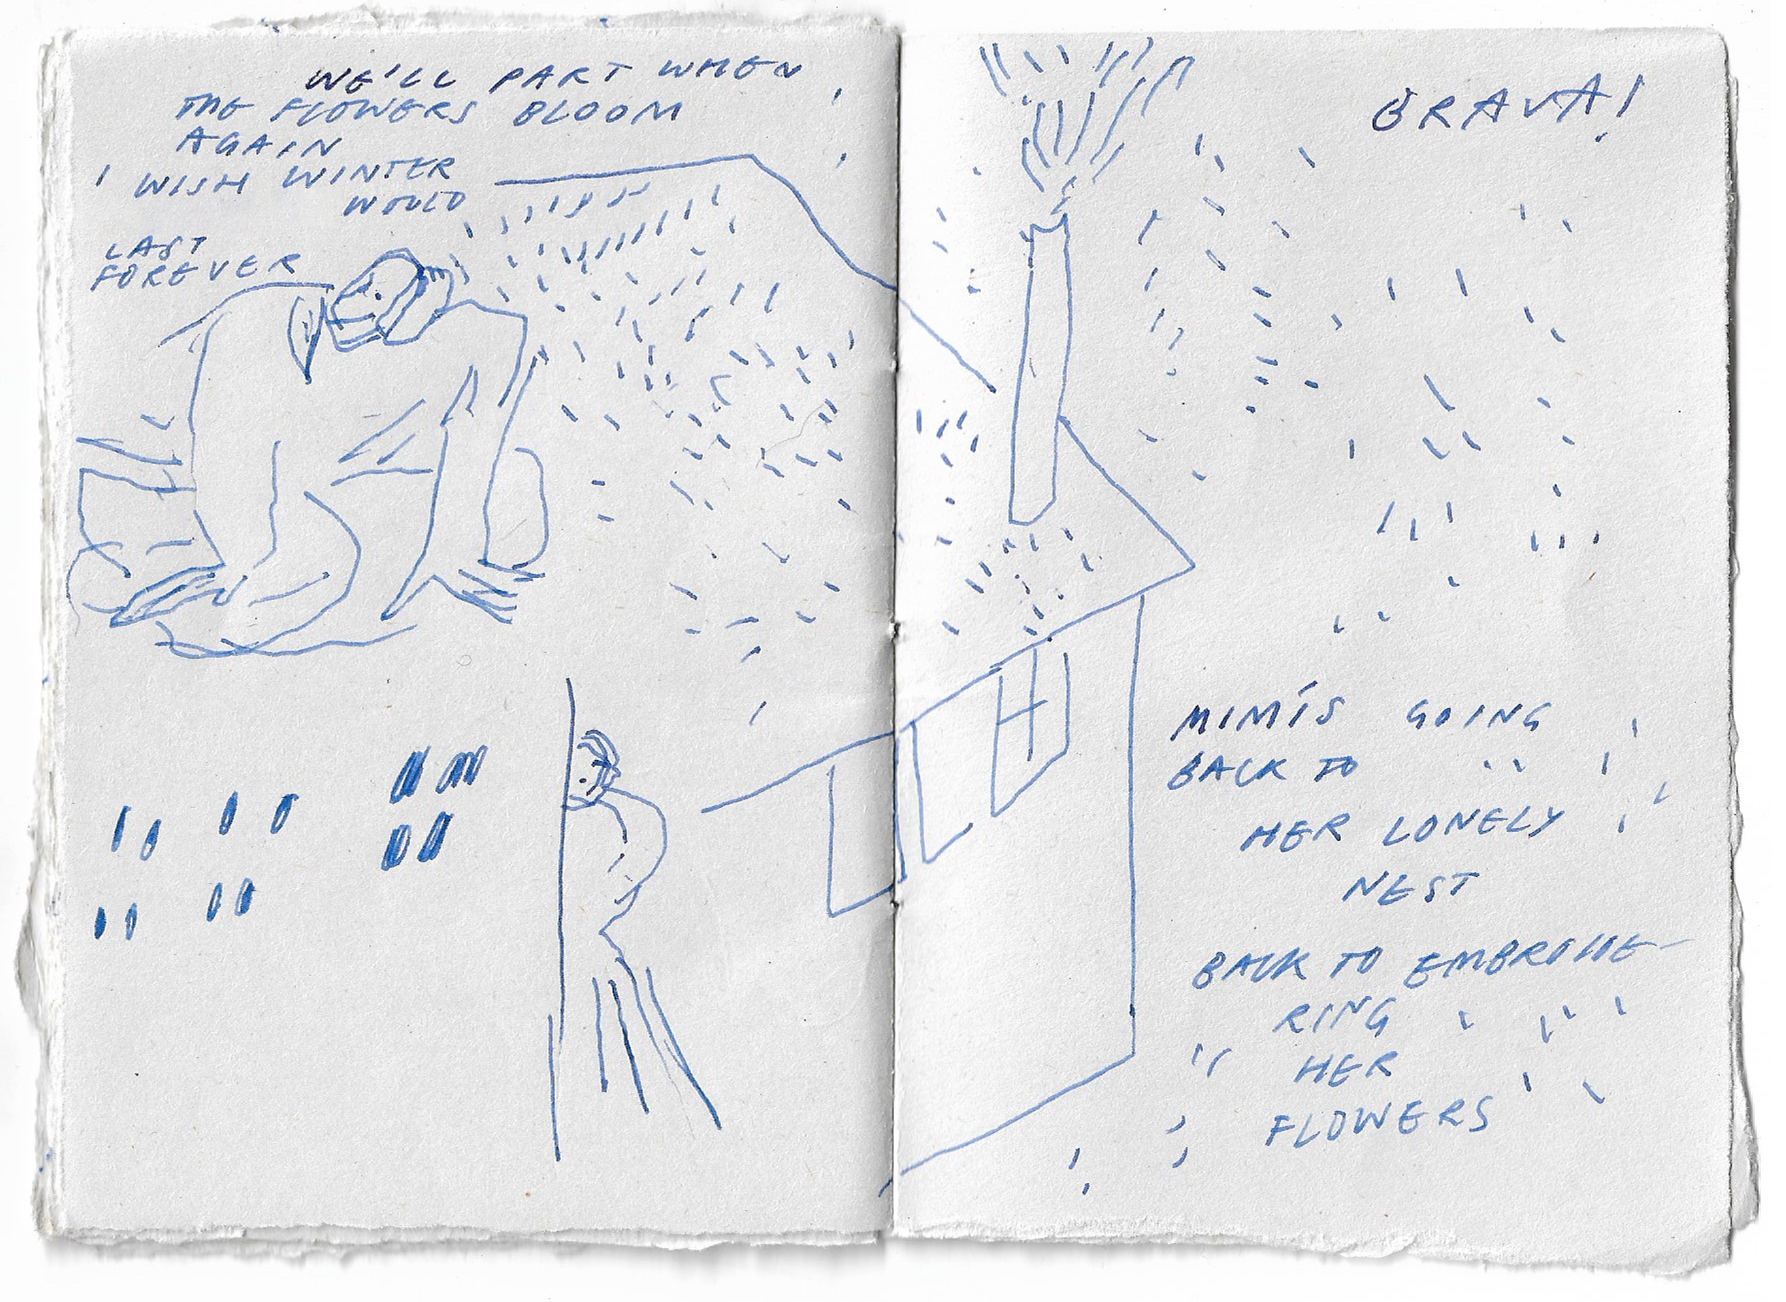 WE'LL PART WHEN
THE FLOWERS BLOOM
AGAIN
I WISH WINTER
WOULD
LAST
FOREVER
BRAVA!
MIMI'S GOING
BACK TO
HER LONELY
NEST
BACK TO EMBROIDE-
RING
HER
FLOWERS